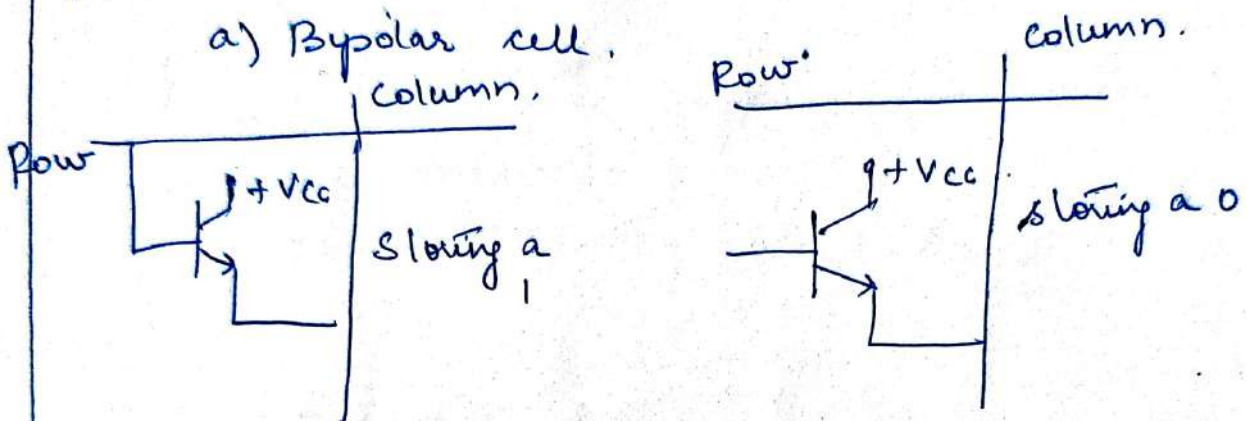 a) Bipolar cell.
column.
Row
+ Vcc
Storing a
1
column.
Row
+ Vcc
Storing a 0